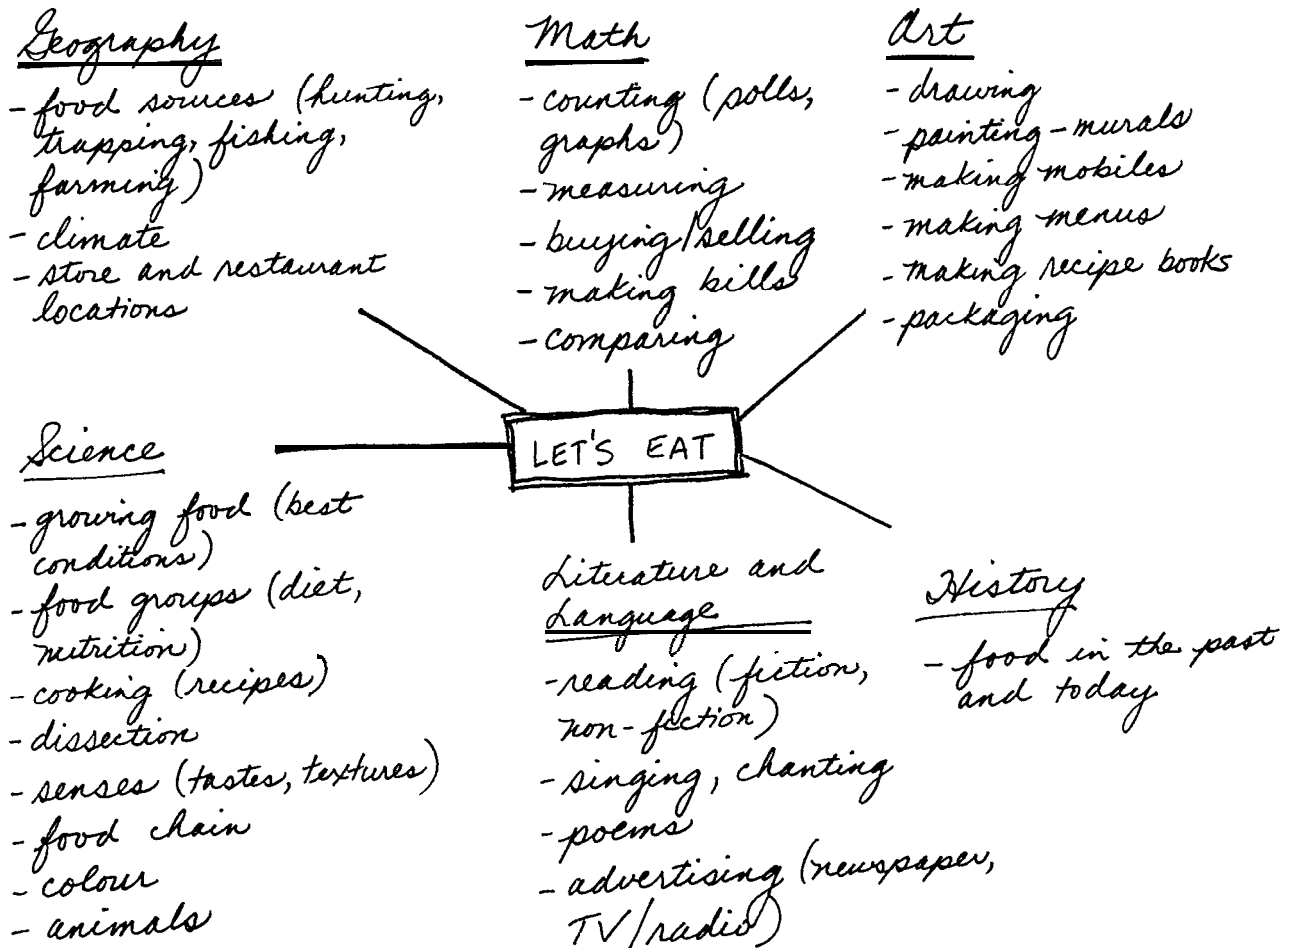 Geography
- food sources (hunting,
trapping, fishing,
farming)
- climate
- store and restaurant
locations
Math
- counting (polls,
graphs)
- measuring
- buying/selling
- making bills
- comparing
Art
- drawing
- painting - murals
- making mobiles
- making menus
- making recipe books
- packaging
LET'S EAT
Science
- growing food (best
conditions)
- food groups (diet,
nutrition)
- cooking (recipes)
- dissection
- senses (tastes, textures)
- food chain
- colour
- animals
Literature and
Language
- reading (fiction,
non-fiction)
- singing, chanting
- poems
- advertising (newspaper,
TV/radio)
History
- food in the past
and today